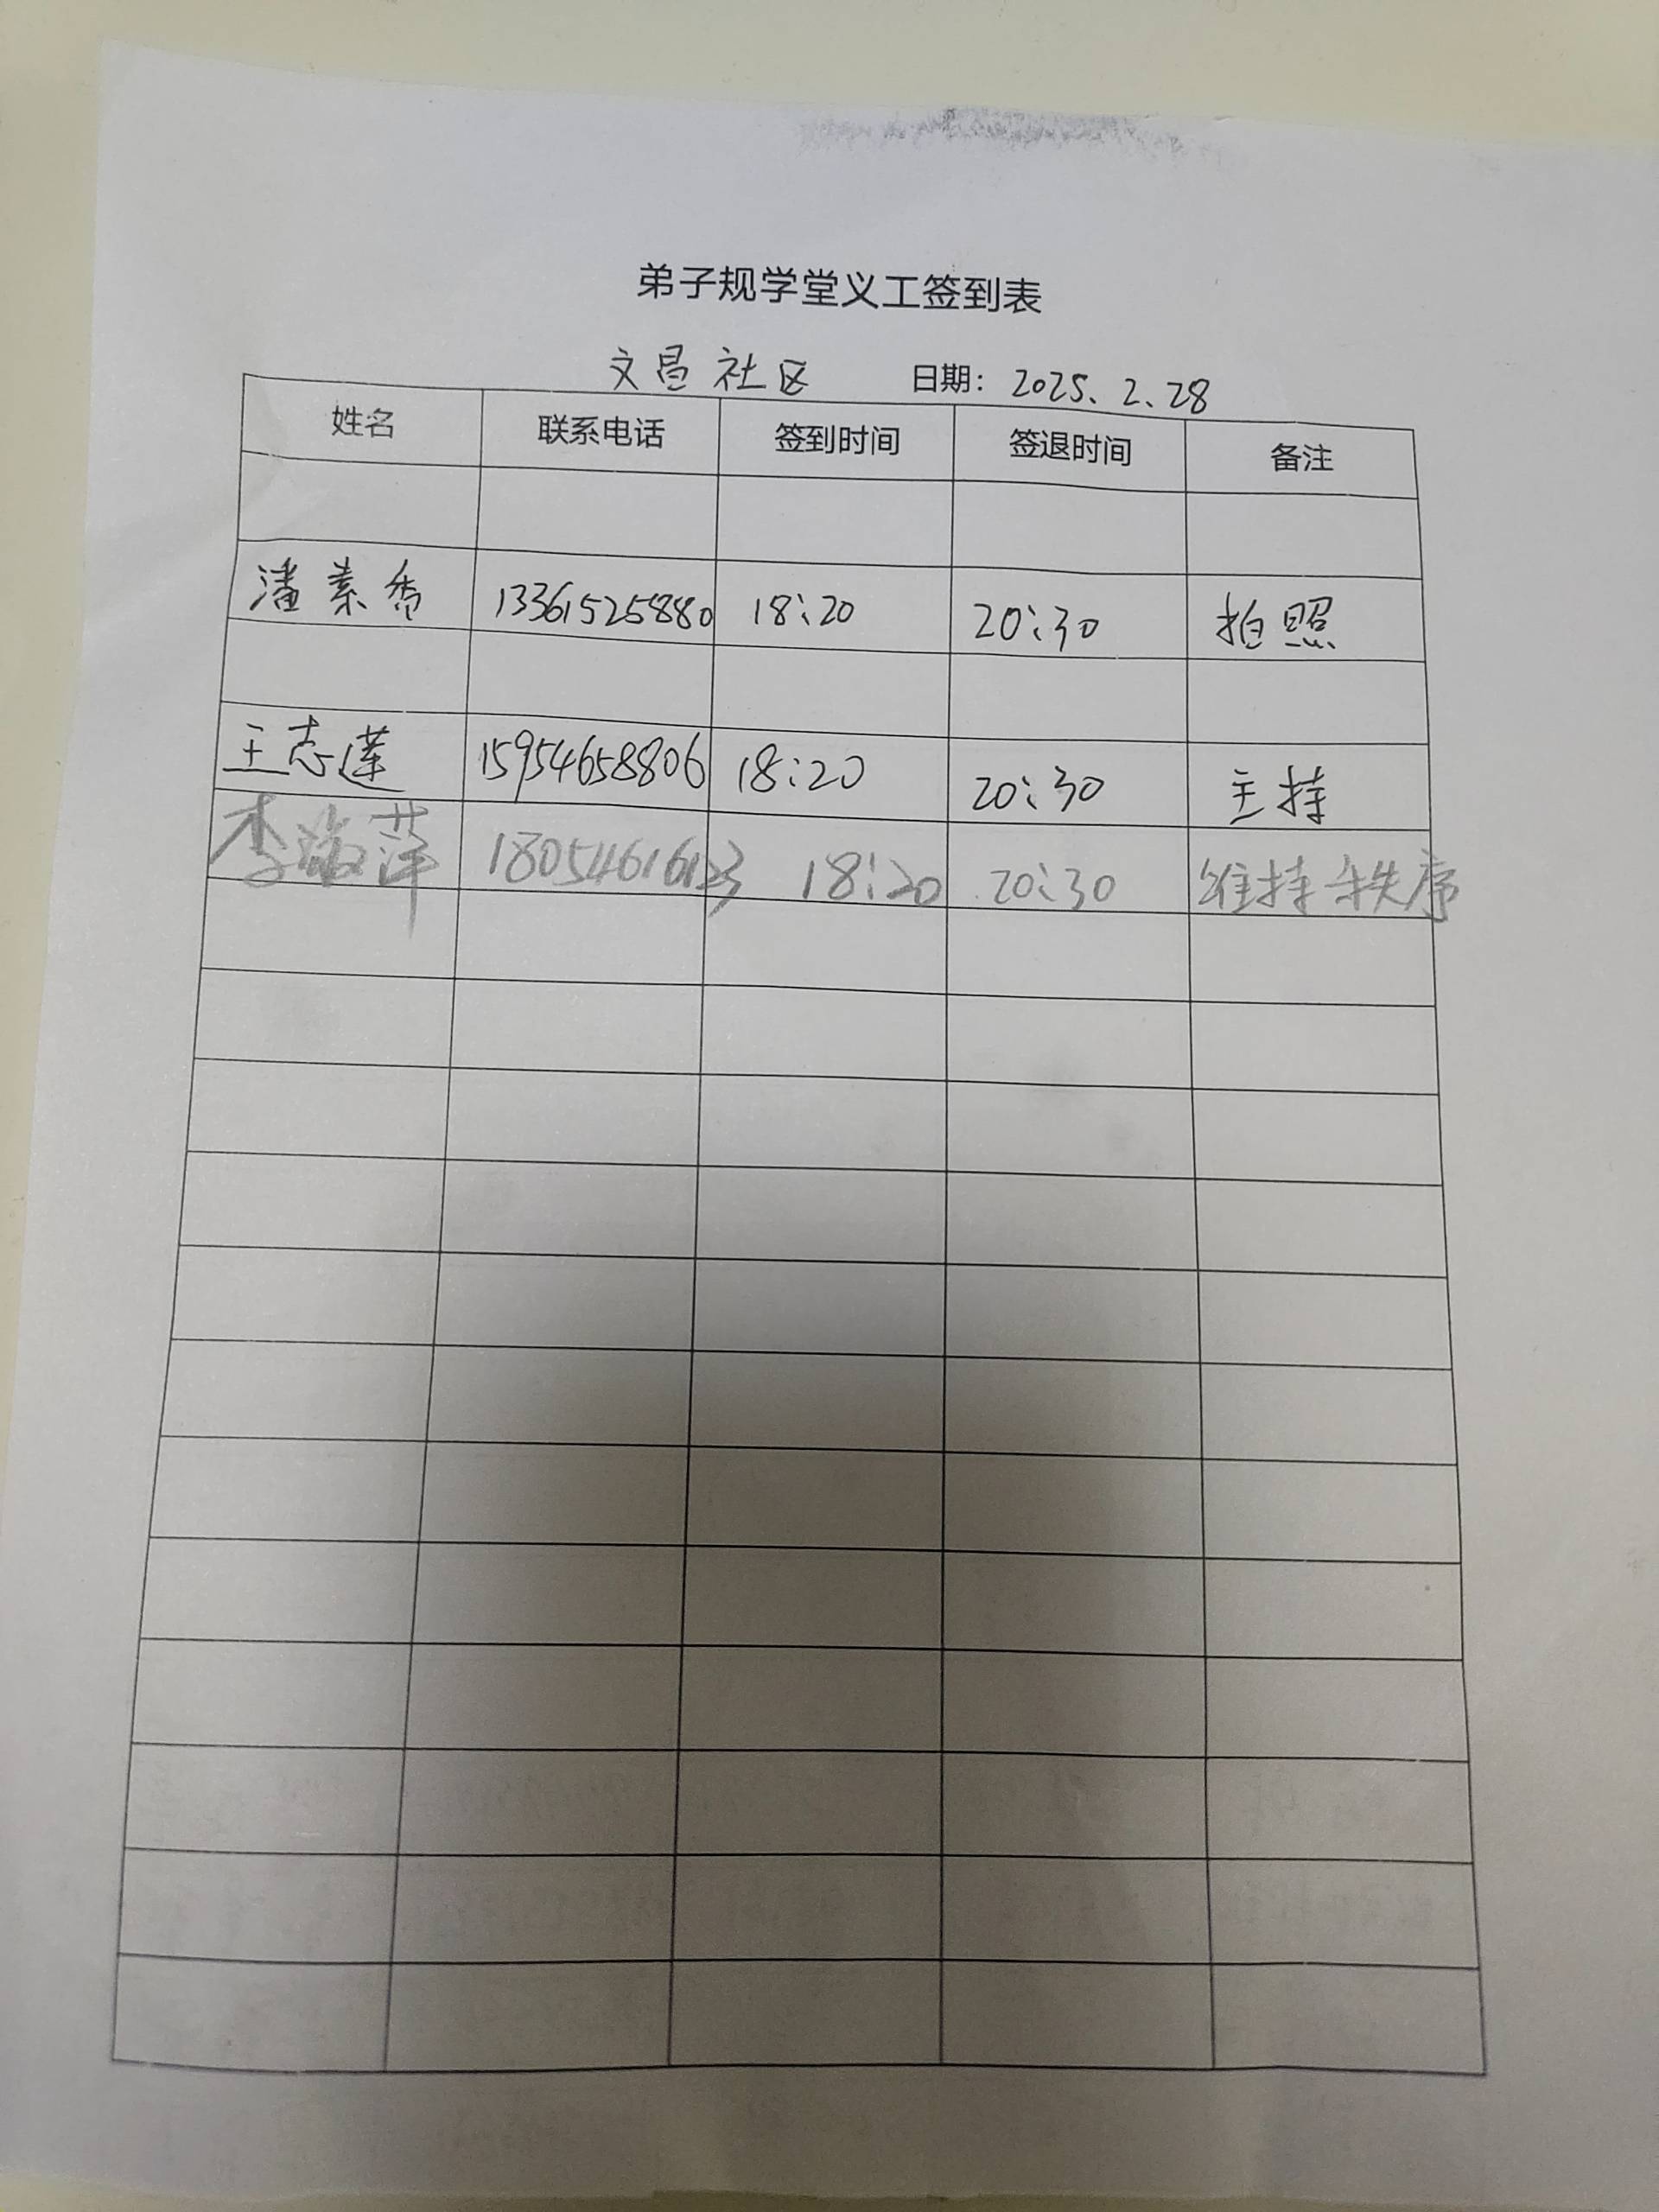 弟子规学堂义工签到表
文昌社区 日期：2025.2.28
姓名 联系电话 签到时间 签退时间 备注
潘素香 13361525880 18:20 20:30 拍照
王志莲 15954658806 18:20 20:30 主持
李 萍 18054616123 18:20 20:30 维持秩序